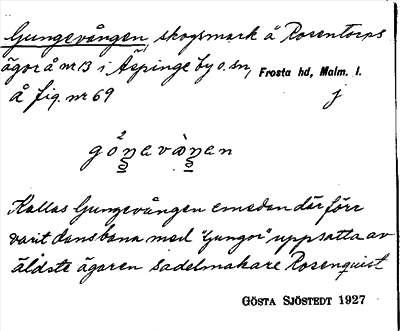 Gungevången, skogsmark å Rosentorps
ägor å nr 13 i Äspinge by o. sn, Frosta hd, Malm. l.
å fig. nr 69 j
Kallas Gungevången emedan där förr
varit dansbana med "Gungor" uppsatta av
äldste ägaren Sadelmakare Rosenquist
GÖSTA SJÖSTEDT 1927